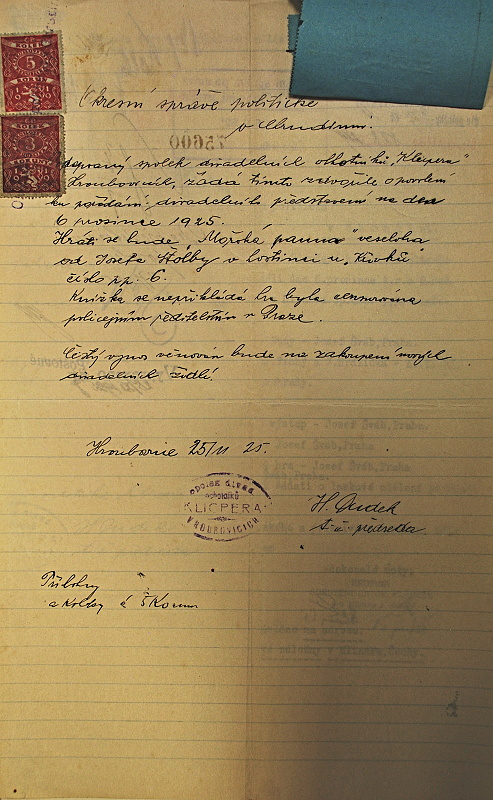 KOLEK
5
KORUN
KOLEK
3
KORUNY
Okresní správě politické
v Chrudimi.
spolek divadelních ochotníků „Klicpera"
v Hroubovicích, žádá tímto zdvořile o povolení
ku pořádání divadelního představení na den
6 prosince 1925.
Hráti se bude „Mořská panna" veselohra
od Josefa Štolby v hostinci u „Kivků
číslo pp. 6.
Knížka se nepřikládá ba byla censurována
policejním ředitelstvím v Praze.
Čistý výnos věnován bude na zakoupení nových
divadelních židlí.
Hroubovice 25/11 25.
Spolek divad.
ochotníků
KLICPERA
V HROUBOVICÍCH
H. Dudek
t. č. předseda
Přílohy
2 Kolky á 5 Korun
75600